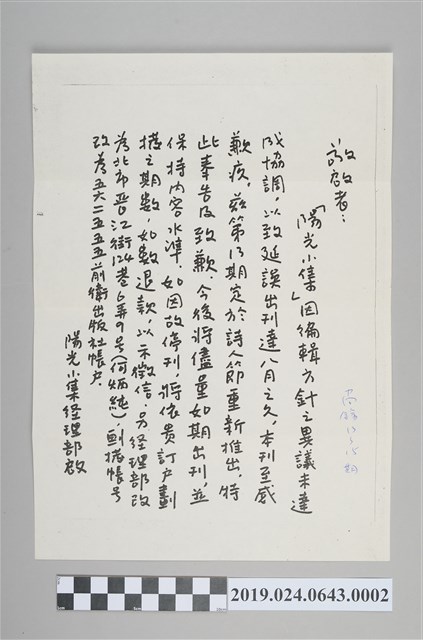 敬啟者：
「陽光小集」因編輯方針之異議未達
成協調，以致延誤出刊達八月之久，本刊至感
歉疚，茲第13期定於詩人節重新推出，特
此奉告及致歉，今後將儘量如期出刊，並
保持內容水準，如因故停刊，將依貴訂户劃
撥之期數，如數退款，以示徵信。另經理部改
為北市晉江街124巷6弄9号（何炳純），劃撥帳号
改為五六二五五五前衛出版社帳户。
陽光小集經理部啟
13~15期
2019.024.0643.0002